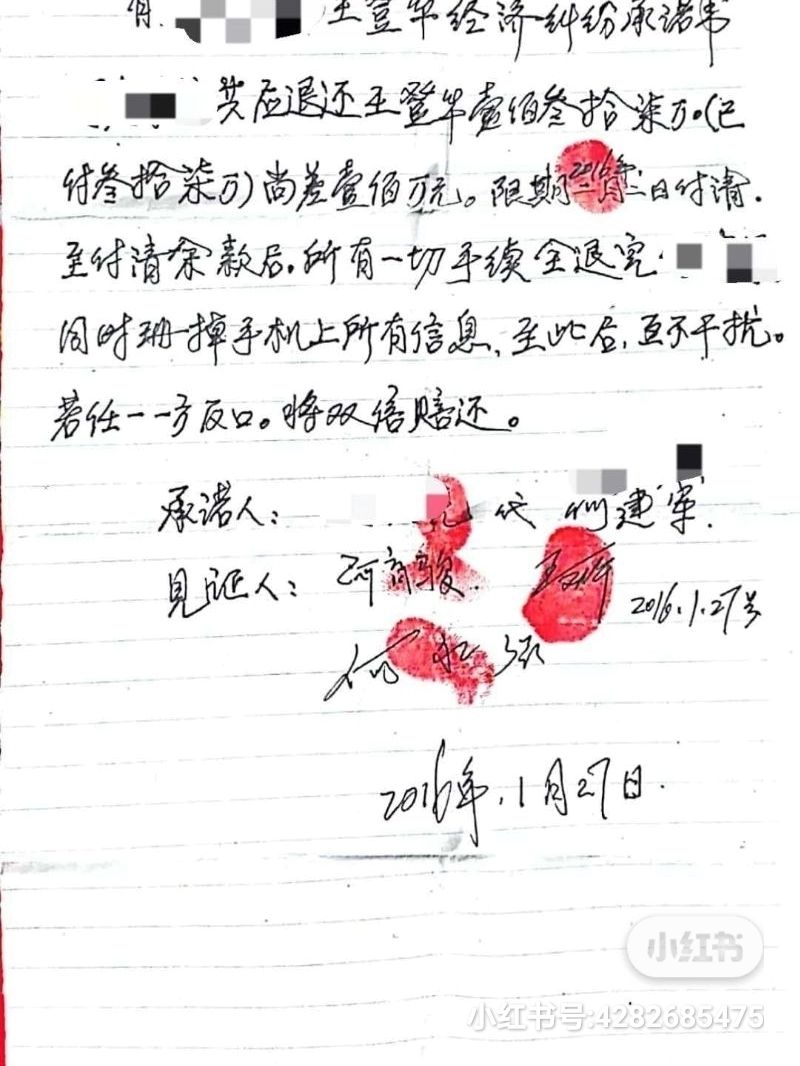 有. 王登华经济纠纷承诺书
共应退还王登华壹佰叁拾柒万。(已
付叁拾柒万)尚差壹佰万元。限期2016年二月二日付清.
至付清余款后。所有一切手续全退完.
同时删掉手机上所有信息、至此后,互不干扰。
若任一一方反口。将双倍赔还。
承诺人: 代 何建军.
见证人: 骏.
2016.1.27号
何
2016年.1月27日.
小红书
小红书号:4282685475